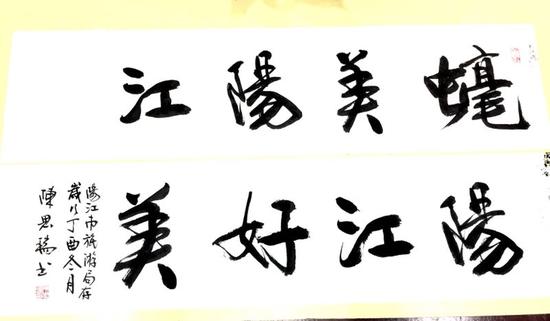 蠔美陽江
陽江好美
陽江市旅游局存
歲次丁酉冬月
陳思 书